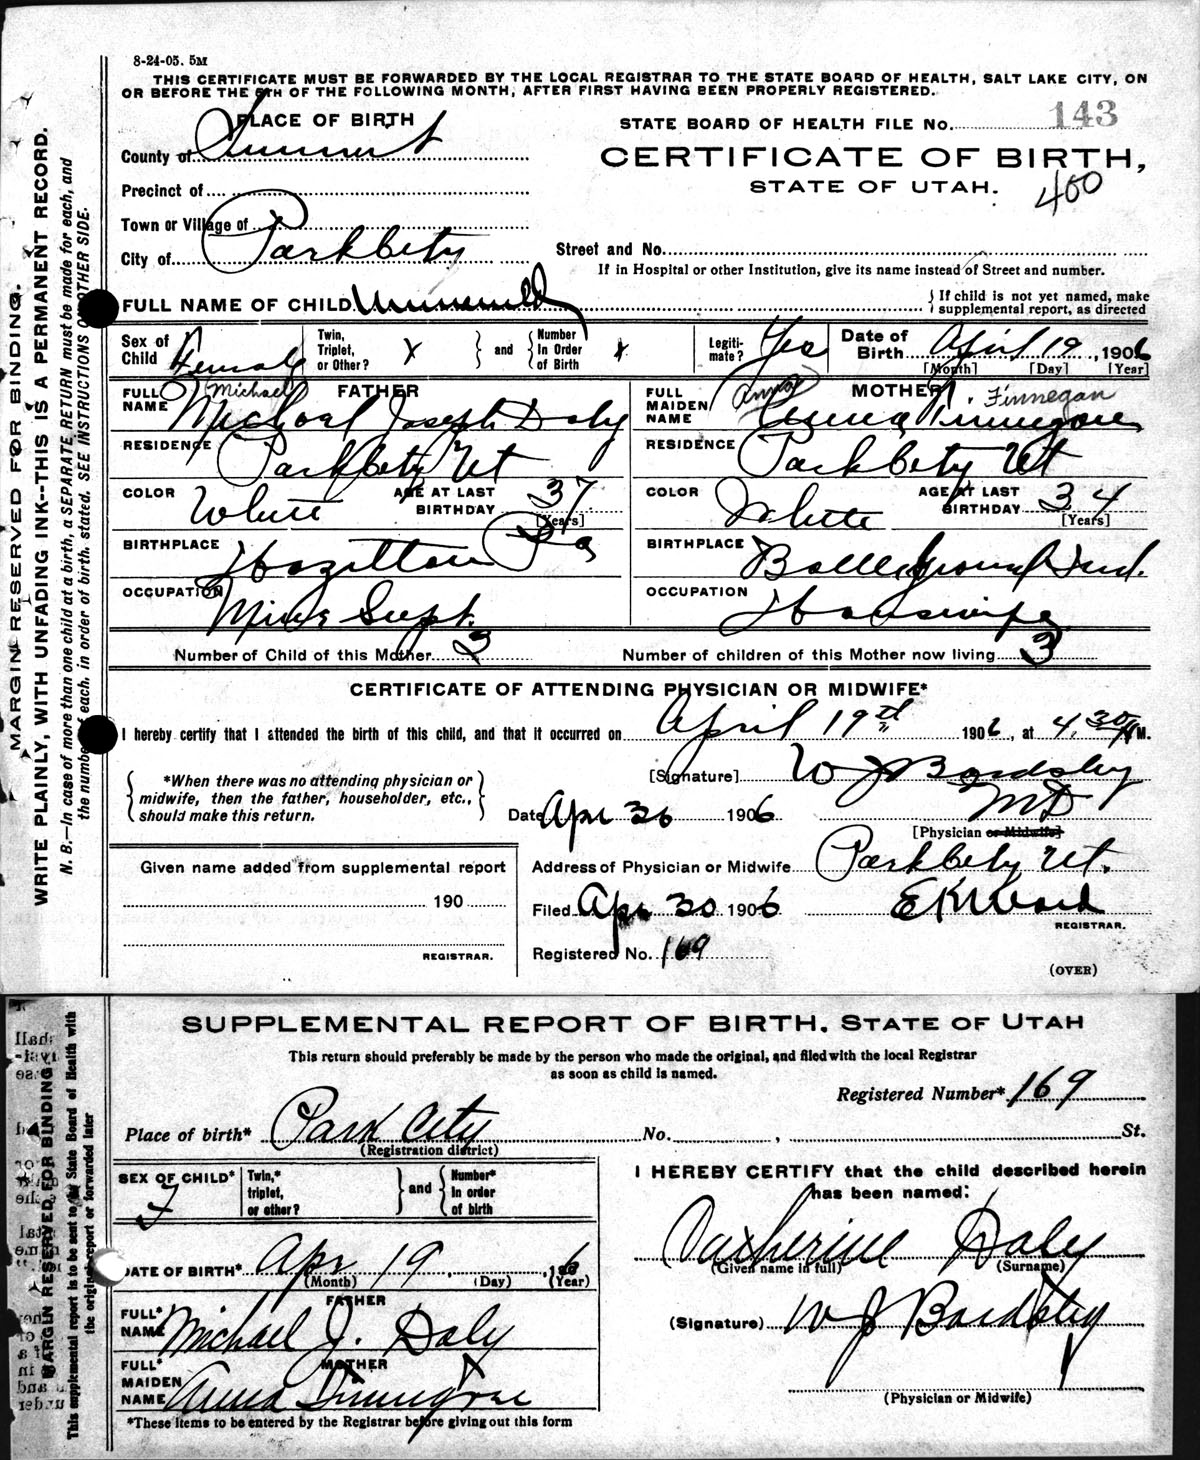 8-24-05. 5M
THIS CERTIFICATE MUST BE FORWARDED BY THE LOCAL REGISTRAR TO THE STATE BOARD OF HEALTH, SALT LAKE CITY, ON
OR BEFORE THE 5TH OF THE FOLLOWING MONTH, AFTER FIRST HAVING BEEN PROPERLY REGISTERED.
PLACE OF BIRTH
STATE BOARD OF HEALTH FILE No. 143
County of Summit
CERTIFICATE OF BIRTH,
STATE OF UTAH.
400
Precinct of
Town or Village of
City of Park City
Street and No.
If in Hospital or other Institution, give its name instead of Street and number.
FULL NAME OF CHILD Unnamed
If child is not yet named, make
supplemental report, as directed
Sex of Child Female
Twin, Triplet, or Other? X
and
Number In Order of Birth x
Legiti-mate? Yes
Date of Birth April 19, 1906
[Month] [Day] [Year]
FATHER
FULL NAME Michael Joseph Daly
Michael
MOTHER
FULL MAIDEN NAME Anna Finnegan
Anna Finnegan
RESIDENCE Park City Ut
RESIDENCE Park City Ut
COLOR White
AGE AT LAST BIRTHDAY 37 [Years]
COLOR White
AGE AT LAST BIRTHDAY 34 [Years]
BIRTHPLACE Hazelton Pa
BIRTHPLACE Battleground Ind.
OCCUPATION Mine Supt.
OCCUPATION Housewife
Number of Child of this Mother 3
Number of children of this Mother now living 3
CERTIFICATE OF ATTENDING PHYSICIAN OR MIDWIFE*
I hereby certify that I attended the birth of this child, and that it occurred on April 19th 1906, at 4.30 M.
*When there was no attending physician or
midwife, then the father, householder, etc.,
should make this return.
[Signature] W J Bardsley
MD
Date Apr 30 1906
[Physician or Midwife]
Given name added from supplemental report
190
REGISTRAR.
Address of Physician or Midwife Park City Ut.
Filed Apr 30 1906
E K Ward
REGISTRAR.
Registered No. 169
(OVER)
MARGIN RESERVED FOR BINDING.
WRITE PLAINLY, WITH UNFADING INK--THIS IS A PERMANENT RECORD.
N. B.—In case of more than one child at a birth, a SEPARATE RETURN must be made for each, and
the number of each, in order of birth, stated. SEE INSTRUCTIONS ON OTHER SIDE.
SUPPLEMENTAL REPORT OF BIRTH, STATE OF UTAH
This return should preferably be made by the person who made the original, and filed with the local Registrar
as soon as child is named.
Registered Number* 169
Place of birth* Park City No. , St.
(Registration district)
SEX OF CHILD* F
Twin,* triplet, or other?
and
Number* In order of birth
I HEREBY CERTIFY that the child described herein
has been named:
Catherine Daly
(Given name in full) (Surname)
DATE OF BIRTH* Apr 19, 1906
(Month) (Day) (Year)
FATHER
FULL* NAME Michael J. Daly
(Signature) W J Bardsley
MOTHER
FULL* MAIDEN NAME Anna Finnegan
(Physician or Midwife)
*These items to be entered by the Registrar before giving out this form
MARGIN RESERVED FOR BINDING
This supplemental report is to be sent to the State Board of Health with
the original report or forwarded later